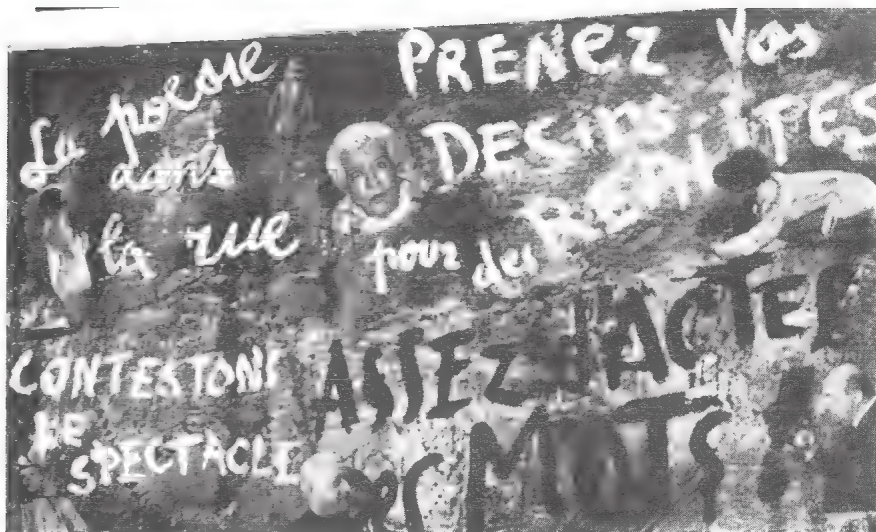 La poésie
dans
la rue
PRENEZ Vos
DESirs
REALITES
pour des
CONTESTONS
LE
SPECTACLE
ASSEZ D'ACTES
MOTS